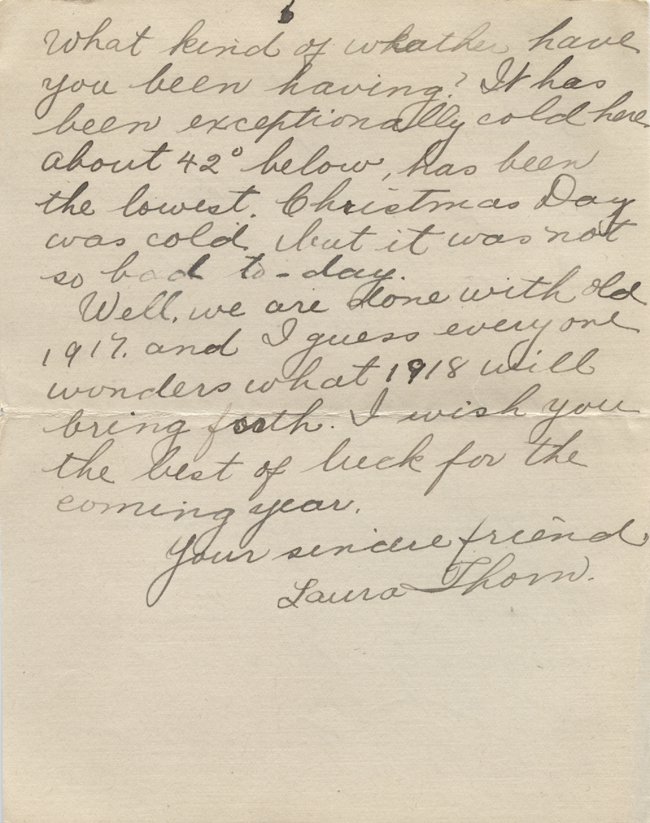 What kind of wheather have
you been having? It has
been exceptionally cold here
about 42° below, has been
the lowest. Christmas Day
was cold, but it was not
so bad to-day.
Well, we are done with old
1917. and I guess every one
wonders what 1918 will
bring forth. I wish you
the best of luck for the
coming year.
Your sincere friend
Laura Thom.